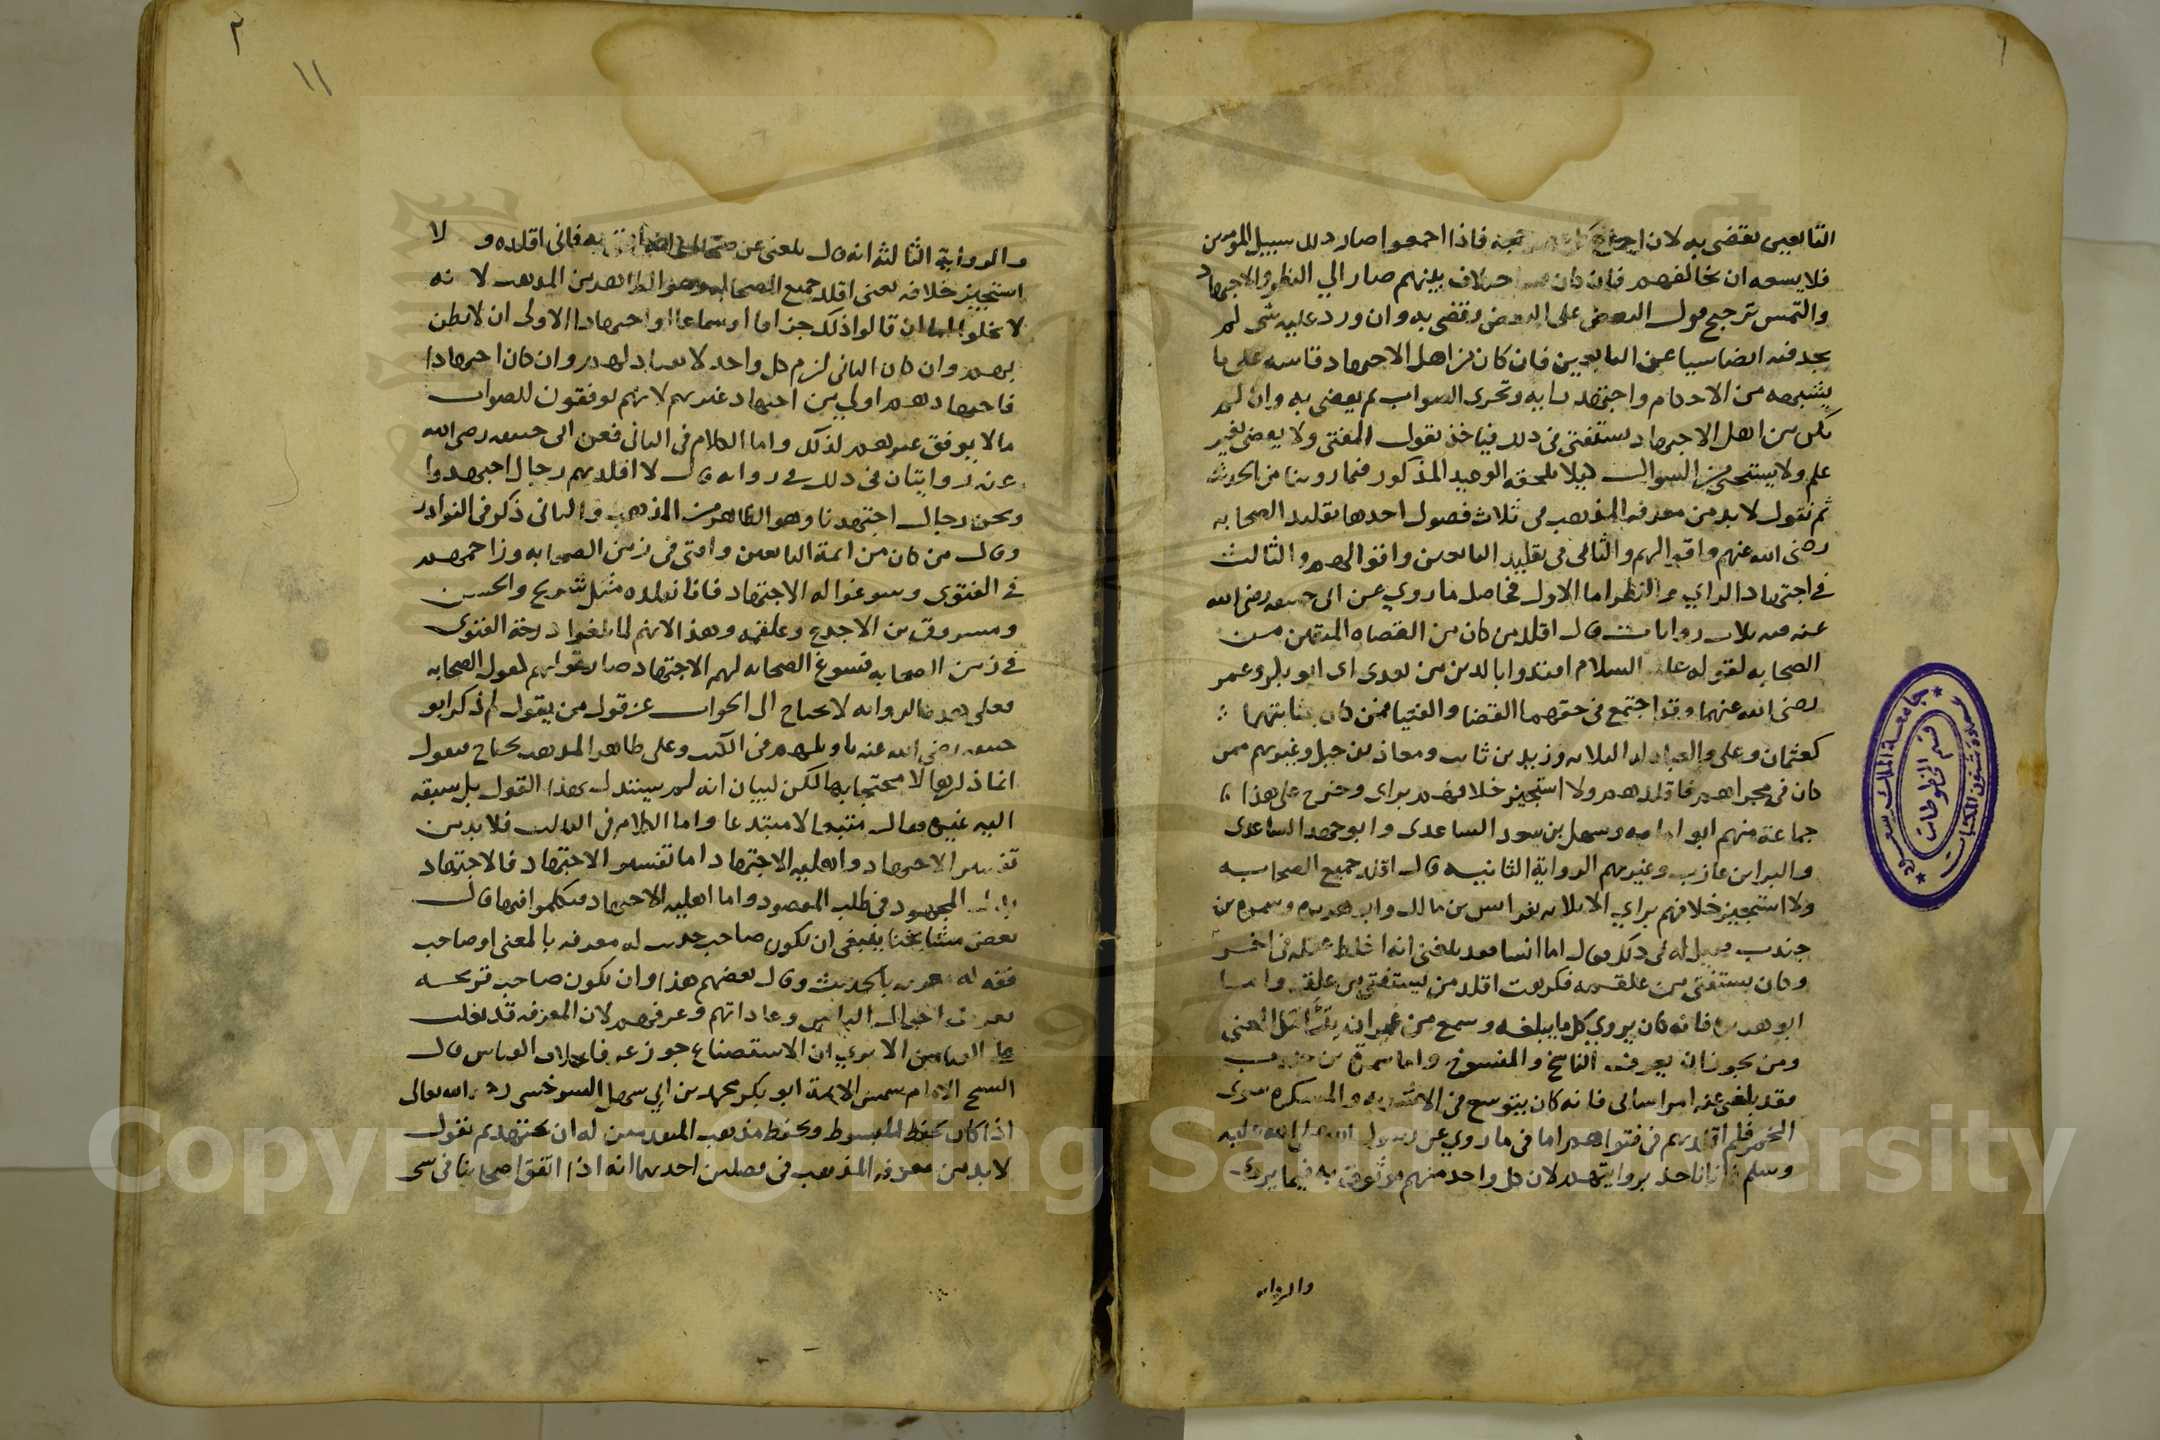 التابعين يقضى به لان اجماع كل عصر حجه فاذا اجمعوا صار ذلك سبيل المؤمنين
فلا يسعه ان يخالفهم فان كان اختلاف بينهم صار الي النظر والاجتهاد
والتمس ترجيح قول البعض على البعض وقضى به وان ورد عليه شى لم
يجد فيه ايضا شيا عن التابعين فان كان من اهل الاجتهاد قاسه على ما
يشبهه من الاحكام واجتهد رايه وتحرى الصواب ثم يقضى به وان لم
يكن من اهل الاجتهاد يستفتى فى ذلك فياخذ بقول المفتى ولا يقضى بغير
علم ولا يستحى من السوال كيلا يلحقه الوعيد المذكور فيما روينا من الحديث
ثم نقول لا بد من معرفه المذهب فى ثلاث فصول احدها تقليد الصحابه
رضى الله عنهم واقوالهم والثانى فى تقليد التابعين واقوالهم والثالث
فى اجتهاد الراي والنظر اما الاول فحاصل ما روي عن ابى حنيفه رضى الله
عنه فيه ثلاث روايات قال اقلد من كان من القضاه المتقين من
الصحابه لقوله عليه السلام اقتدوا بالذين من بعدى اى ابو بكر وعمر
رضى الله عنهما وقد اجتمع فى حقهما القضا والفتيا فمن كان بمثابتهما
كعثمان وعلى والعبادله الثلاثه وزيد بن ثابت ومعاذ بن جبل وغيرهم ممن
كان فى مجراهم فاقلدهم ولا استجيز خلافهم براى وخرج على هذا
جماعة منهم ابو امامه وسهل بن سعد الساعدى وابو حميد الساعدى
والبرا بن عازب وغيرهم الرواية الثانيه قال اقلد جميع الصحابه
ولا استجيز خلافهم براي الا ثلاثه نفر انس بن مالك وابو هريره وسمره بن
جندب فقيل له فى ذلك فقال اما انس فقد بلغنى انه اختلط عقله فى اخر
وكان يستفتى من علقمه فكيف اقلد من يستفتى من علقمه واما
ابو هريره فانه كان يروي كل ما يبلغه وسمع من غير ان يتامل المعنى
ومن غير ان يعرف الناسخ والمنسوخ واما سمرة بن جندب
فقد بلغنى عنه امر ساءنى فانه كان يتوسع فى الاشربه والمسكره سوى
الخمر فلم اقلدهم فى فتواهم اما فى ما روي عن رسول الله صلى الله عليه
وسلم فانا ناخذ بروايتهم لان كل واحد منهم موثوق به فيما يروى
والروايه
والرواية الثالثه انه قال بلغنى عن به فانى اقلده ولا
استجيز خلافه يعنى اقلد جميع الصحابه وهو الظاهر من المذهب لانه
لا يخلو اما ان قالوا ذلك جزافا او سماعا او اجتهادا الاولى ان لا يظن
بهم وان كان الثانى لزم كل واحد الانقياد لهم وان كان اجتهادا
فاجتهادهم اولى من اجتهاد غيرهم لانهم يوفقون للصواب
ما لا يوفق غيرهم لذلك واما الكلام فى الثانى فعن ابى حنيفه رضى الله
عنه روايتان فى ذلك فى روايه قال لا اقلدهم رجال اجتهدوا
ونحن رجال اجتهدنا وهو الظاهر من المذهب والثانى ذكر فى النوادر
وقال من كان من ائمة التابعين وافتى فى زمن الصحابه وزاحمهم
فى الفتوى وسوغوا له الاجتهاد فانا نقلده مثل شريح والحسن
ومسروق بن الاجدع وعلقمه وهذا لانهم لما بلغوا درجة الفتوى
فى زمن الصحابه فسوغ الصحابه لهم الاجتهاد صار قولهم كقول الصحابه
فعلى هذه الروايه لا يحتاج الى الجواب عن قول من يقول لم ذكر ابو
حنيفه رضى الله عنه اقاويلهم فى الكتب وعلى ظاهر المذهب يحتاج فيقول
انما ذكرها لا محتجا بها لكن لبيان انه لم يستبد بهذا القول بل سبقه
اليه غيره فقال متبعا لا مبتدعا واما الكلام فى الثالث فلا بد من
تفسير الاجتهاد واهليه الاجتهاد اما تفسير الاجتهاد فالاجتهاد
بذل المجهود فى طلب المقصود واما اهليه الاجتهاد فتكلموا فيها قال
بعض مشايخنا ينبغى ان يكون صاحب حديث له معرفه بالمعنى او صاحب
فقه له معرفه بالحديث وقال بعضهم هذا وان يكون صاحب قريحه
يعرف احوال الناس وعاداتهم وعرفهم لان المعرفه قد تغلب
على القياس الا يري ان الاستصناع جوزعه فا بخلاف القياس قال
الشيخ الامام شمس الايمة ابو بكر محمد بن ابي سهل السرخسى رحمه الله تعالى
اذا كان يحفظ المبسوط ويحفظ مذهب المتقدمين له ان يجتهد ثم نقول
لا بد من معرفه المذهب فى فصلين احدهما انه اذا اتفق اصحابنا فى شى
١
٢
١١
جامعة الملك سعود
قسم المخطوطات
عمادة شئون المكتبات
Copyright © King Saud University